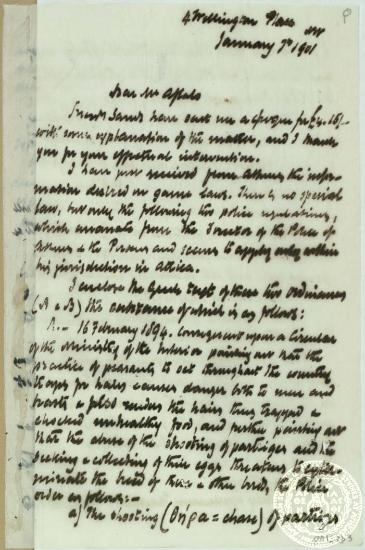 4 Wellington Place
NW
January 7th 1901
Dear Mr Aflalo
Sands have sent me a cheque for £4.16/-
with some explanation of the matter, and I thank
you for your effectual intervention.
I have just received from Athens the infor-
mation desired on game laws. There is no special
law, but only the following two police regulations,
which emanate from the Director of the Police of
Athens & the Piraeus and seems to apply only within
his jurisdiction in Attica.
I enclose the Greek text of these two ordinances
(A & B) the substance of which is as follows:
A.- 16 February 1894. Consequent upon a circular
of the Ministry of the Interior pointing out that the
practice of peasants to set throughout the country
traps for hares causes danger both to men and
beasts & also renders the hares thus trapped a
choked unhealthy food, and further pointing out
that the abuse of the shooting of partridges and the
seeking & collecting of their eggs threatens to exter-
minate the breed of these & other birds, the Police
order as follows:-
a) The shooting (θήρα = chase) of partridges